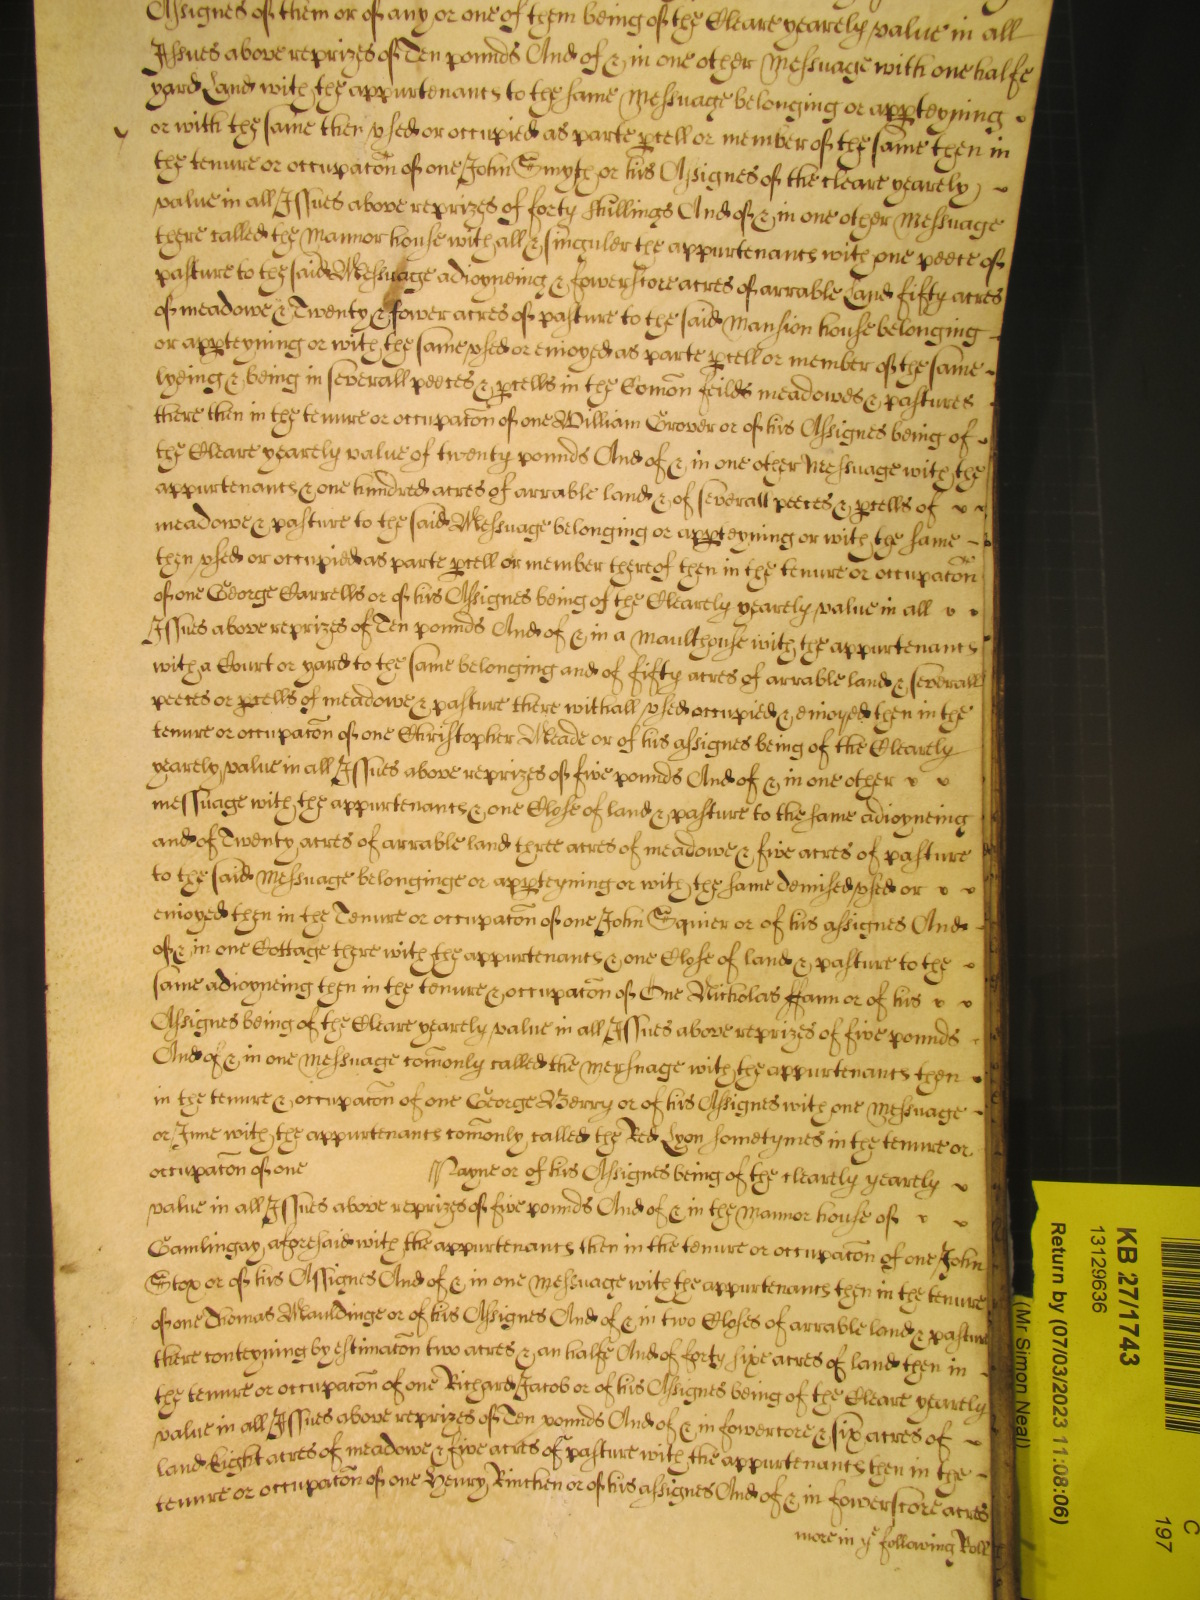 Assignes of them or of any or one of them being of the Cleare yearely value in all
Issues above reprizes of Ten pounds And of & in one other Messuage with one halfe
yard Land with the appurtenants to the same Messuage belonging or appteyning
or with the same then vsed or occupied as parte pcell or member of the same then in
the tenure or occupacōn of one John Smyth or his Assignes of the cleare yearely
value in all Issues above reprizes of forty Shillings And of & in one other Messuage
there called the Mannor house with all & singuler the appurtenants with one peece of
pasture to the said Messuage adioyneing & fowerscore acres of arrable Land fifty acres
of meadowe & Twenty & fower acres of pasture to the said Mansion house belonging
or appteyning or with the same vsed or enioyed as parte pcell or member of the same
lyeing & being in severall peeces & pcells in the Comōn feilds meadowes & pastures
there then in the tenure or occupacōn of one William Grover or of his Assignes being of
the Cleare yearely value of twenty pounds And of & in one other Messuage with the
appurtenants & one hundred acres of arrable land & of severall peeces & pcells of
meadowe & pasture to the said Messuage belonging or appteyning or with the same
then vsed or occupied as parte pcell or member thereof then in the tenure or occupacōn
of one George Carrells or of his Assignes being of the Clearely yearely value in all
Issues above reprizes of Ten pounds And of & in a Maulthouse with the appurtenants
with a Court or yard to the same belonging and of fifty acres of arrable land & severall
peeces or pcells of meadowe & pasture there withall vsed occupied & enioyed then in the
tenure or occupacōn of one Christopher Meade or of his assignes being of the Clearely
yearely value in all Issues above reprizes of five pounds And of & in one other
messuage with the appurtenants & one Close of land & pasture to the same adioyneing
and of Twenty acres of arrable land three acres of meadowe & five acres of pasture
to the said Messuage belonginge or appteyning or with the same demised vsed or
enioyed then in the Tenure or occupacōn of one John Squier or of his assignes And
of & in one Cottage there with the appurtenants & one Close of land & pasture to the
same adioyneing then in the tenure & occupacōn of One Nicholas ffann or of his
Assignes being of the Cleare yearely value in all Issues above reprizes of five pounds
And of & in one Messuage comōnly called the Mersnage with the appurtenants then
in the tenure & occupacōn of one George Berry or of his Assignes with one Messuage
or Inne with the appurtenants comōnly called the Red Lyon sometymes in the tenure or
occupacōn of one Payne or of his Assignes being of the clearely yearely
value in all Issues above reprizes of five pounds And of & in the Mannor house of
Gamlingay aforesaid with the appurtenants then in the tenure or occupacōn of one John
Stox or of his Assignes And of & in one Messuage with the appurtenants then in the tenure
of one Thomas Mauldinge or of his Assignes And of & in two Closes of arrable land & pasture
there conteyning by estimacōn two acres & an halfe And of forty sixe acres of land then in
the tenure or occupacōn of one Richard Jacob or of his Assignes being of the Cleare yearely
value in all Issues above reprizes of Ten pounds And of & in fowercore & six acres of
land Eight acres of meadowe & five acres of pasture with the appurtenants then in the
tenure or occupacōn of one Henry Rincken or of his assignes And of & in fowerscore acres
more in ye following Roll
KB 27/1743
13129636
Return by (07/03/2023 11:08:06)
(Mr Simon Neal)
C
197